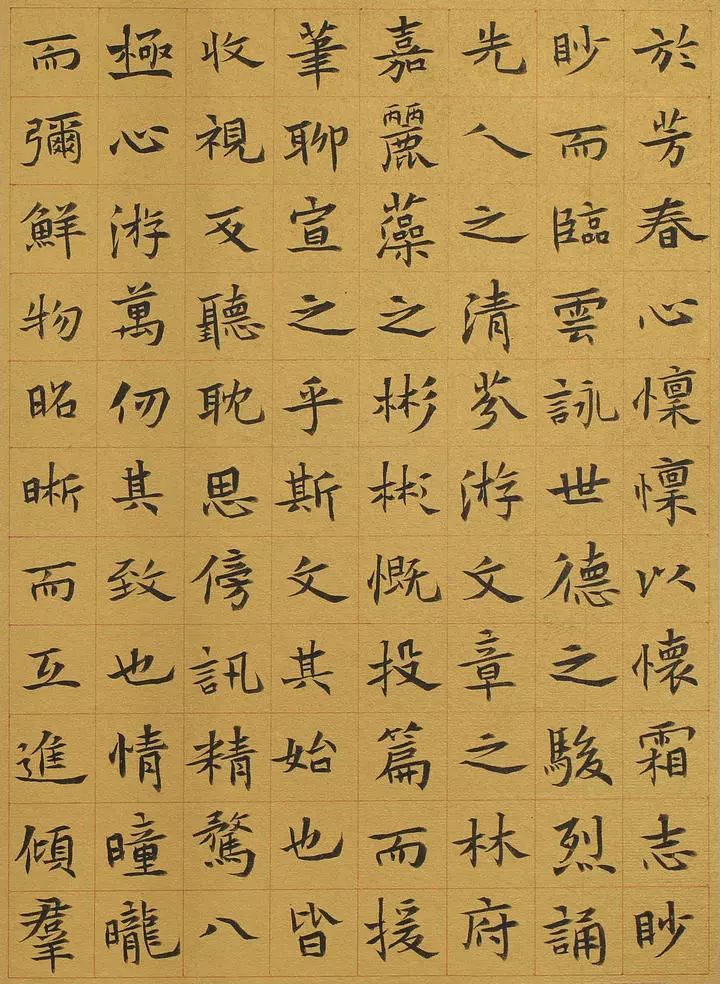 於芳春心懍懍以懷霜志眇
眇而臨雲詠世德之駿烈誦
先人之清芬游文章之林府
嘉麗藻之彬彬慨投篇而援
筆聊宣之乎斯文其始也皆
收視反聽耽思傍訊精騖八
極心游萬仞其致也情曈曨
而彌鮮物昭晰而互進傾羣